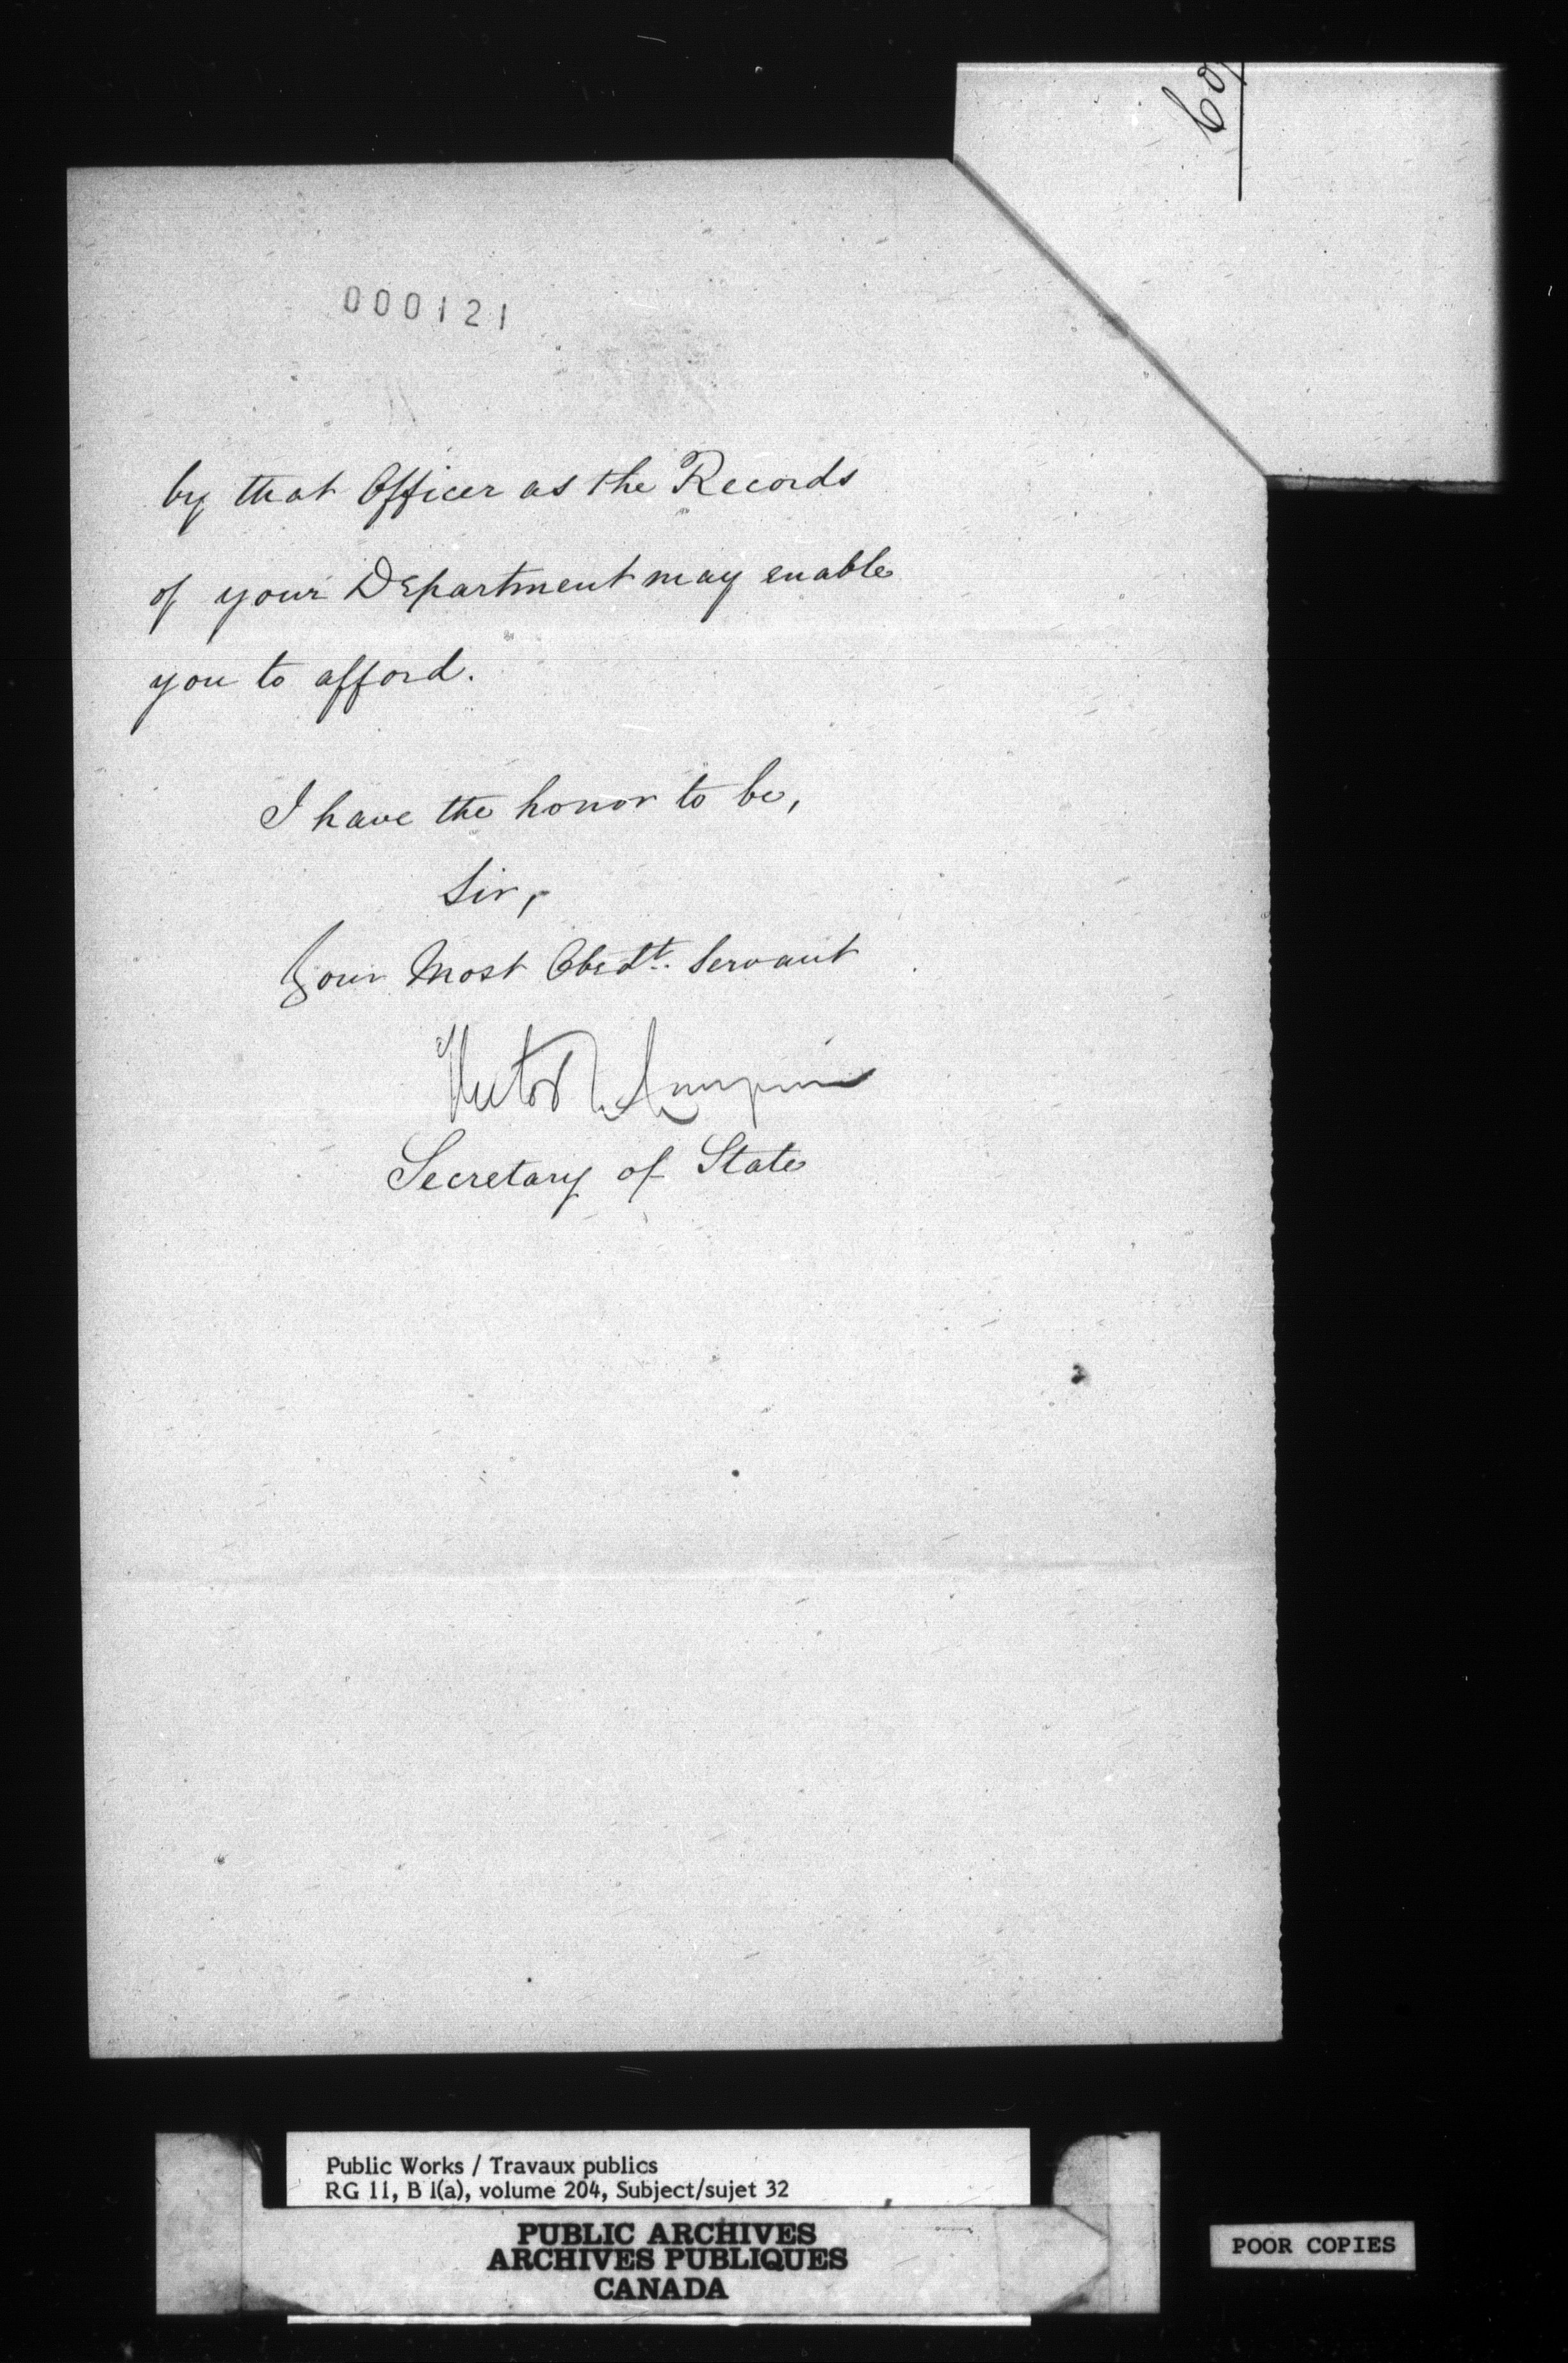 000121
by that Officer as the Records
of your Department may enable
you to afford.
I have the honor to be,
Sir,
Your Most Obedt. Servant
Secretary of State
Public Works / Travaux publics
RG 11, B 1(a), volume 204, Subject/sujet 32
PUBLIC ARCHIVES
ARCHIVES PUBLIQUES
CANADA
POOR COPIES